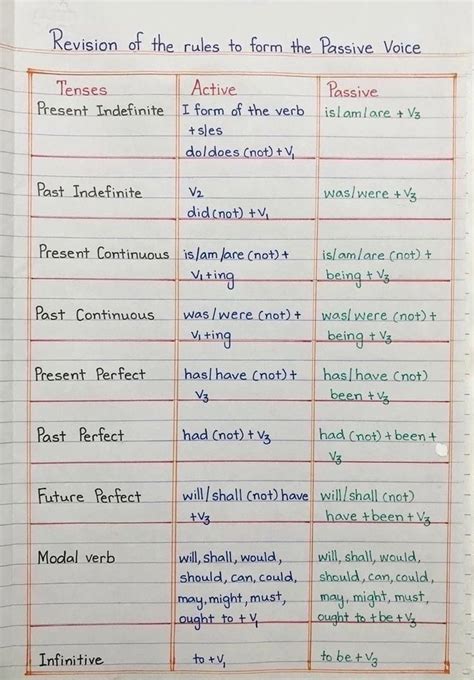 Revision of the rules to form the Passive Voice
Tenses Active Passive
Present Indefinite I form of the verb is/am/are + V3
+s/es
do/does (not) + V1
Past Indefinite V2 was/were + V3
did (not) + V1
Present Continuous is/am/are (not) + is/am/are (not) +
V1+ing being + V3
Past Continuous was/were (not) + was/were (not) +
V1+ing being + V3
Present Perfect has/have (not) + has/have (not)
V3 been + V3
Past Perfect had (not) + V3 had (not) + been +
V3
Future Perfect will/shall (not) have will/shall (not)
+V3 have + been + V3
Modal verb will, shall, would, will, shall, would,
should, can, could, should, can, could,
may, might, must, may, might, must,
ought to + V1 ought to + be + V3
Infinitive to + V1 to be + V3